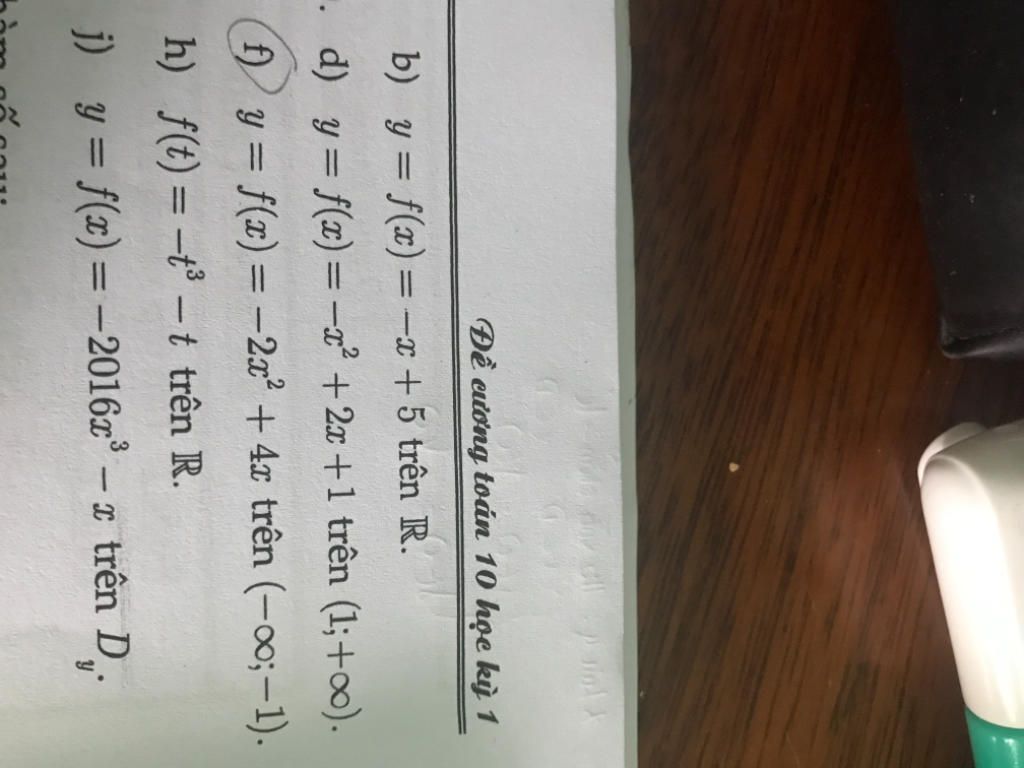 Đề cương toán 10 học kỳ 1
b) y = f(x) = −x + 5 trên ℝ.
d) y = f(x) = −x² + 2x + 1 trên (1; +∞).
f) y = f(x) = −2x² + 4x trên (−∞; −1).
h) f(t) = −t³ − t trên ℝ.
j) y = f(x) = −2016x³ − x trên D_y.